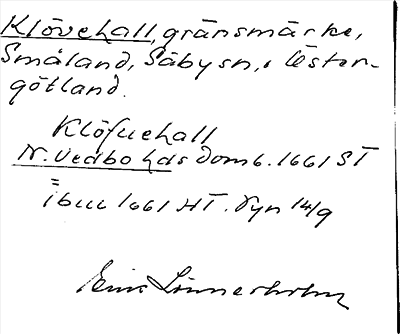 Klövehall, gränsmärke,
Småland, Säby sn, Öster-
götland.
Klöfuehall
N. Vedbo hds domb. 1661 ST
1661 HT. Ryn 14/9
Linnerholm